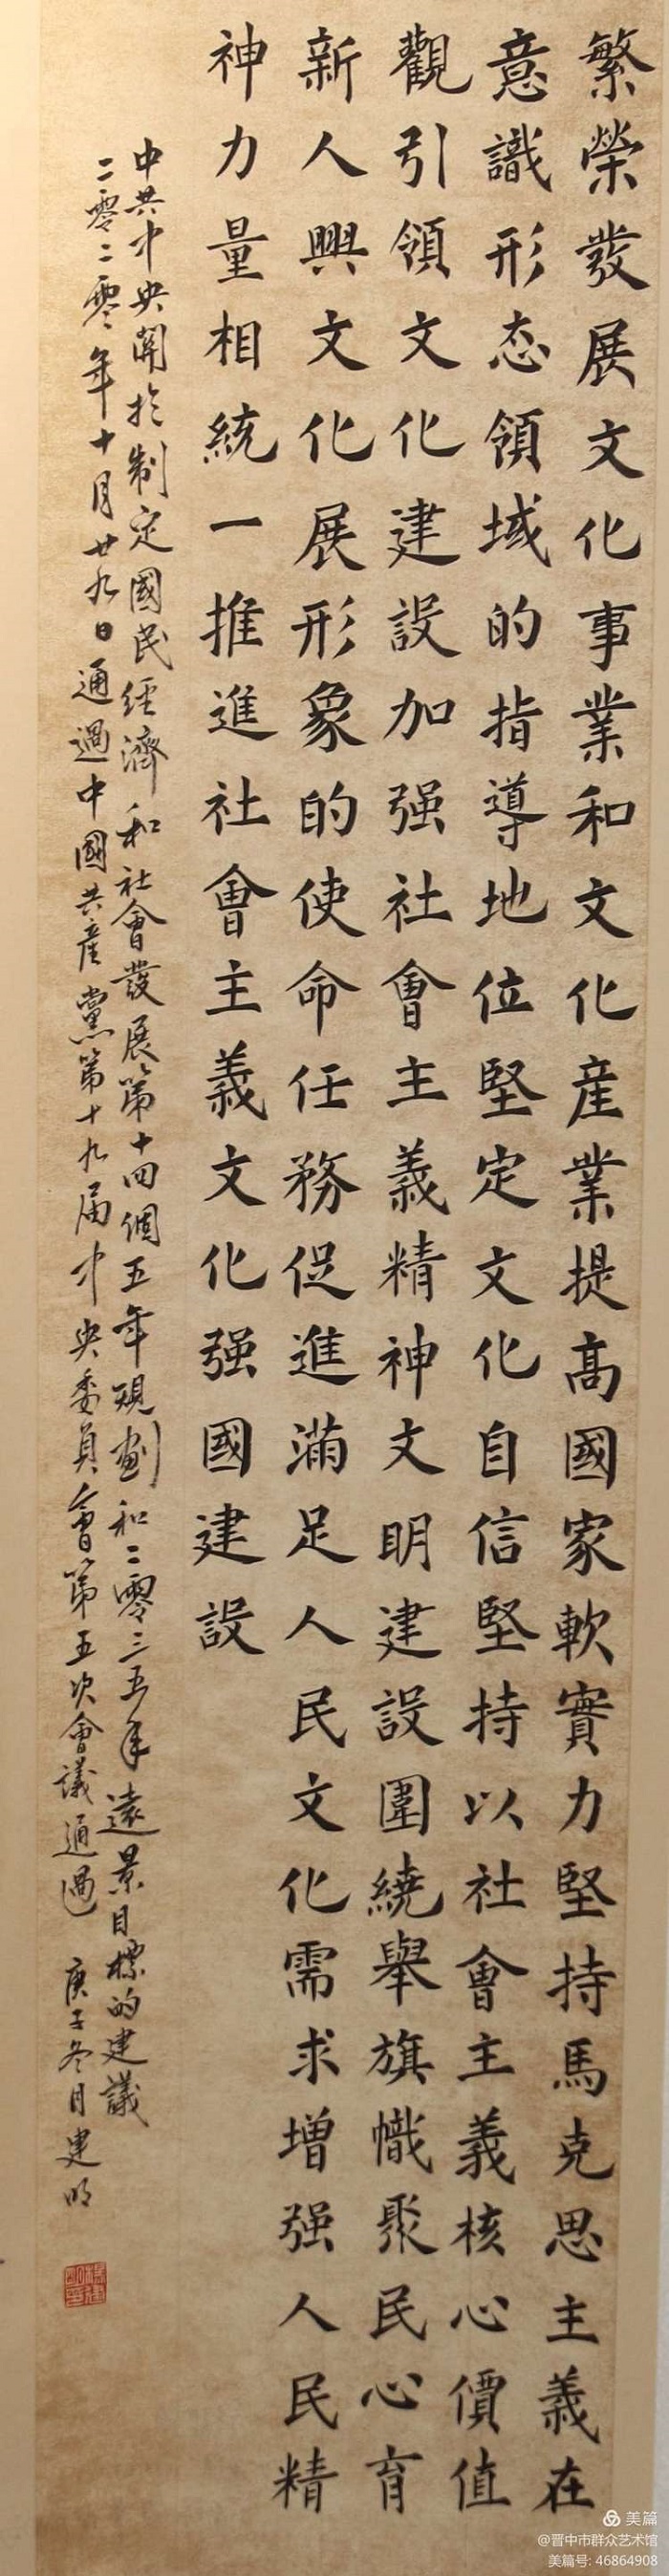 繁榮發展文化事業和文化産業提高國家軟實力堅持馬克思主義在
意識形态領域的指導地位堅定文化自信堅持以社會主義核心價值
觀引領文化建設加强社會主義精神文明建設圍繞舉旗幟聚民心育
新人興文化展形象的使命任務促進滿足人民文化需求增强人民精
神力量相統一推進社會主義文化强國建設
中共中央關於制定國民經濟和社會發展第十四個五年規劃和二零三五年遠景目標的建議
二零二零年十月廿九日通過中國共産黨第十九届中央委員會第五次會議通過 庚子冬月建明
美篇
@晋中市群众艺术馆
美篇号: 46864908